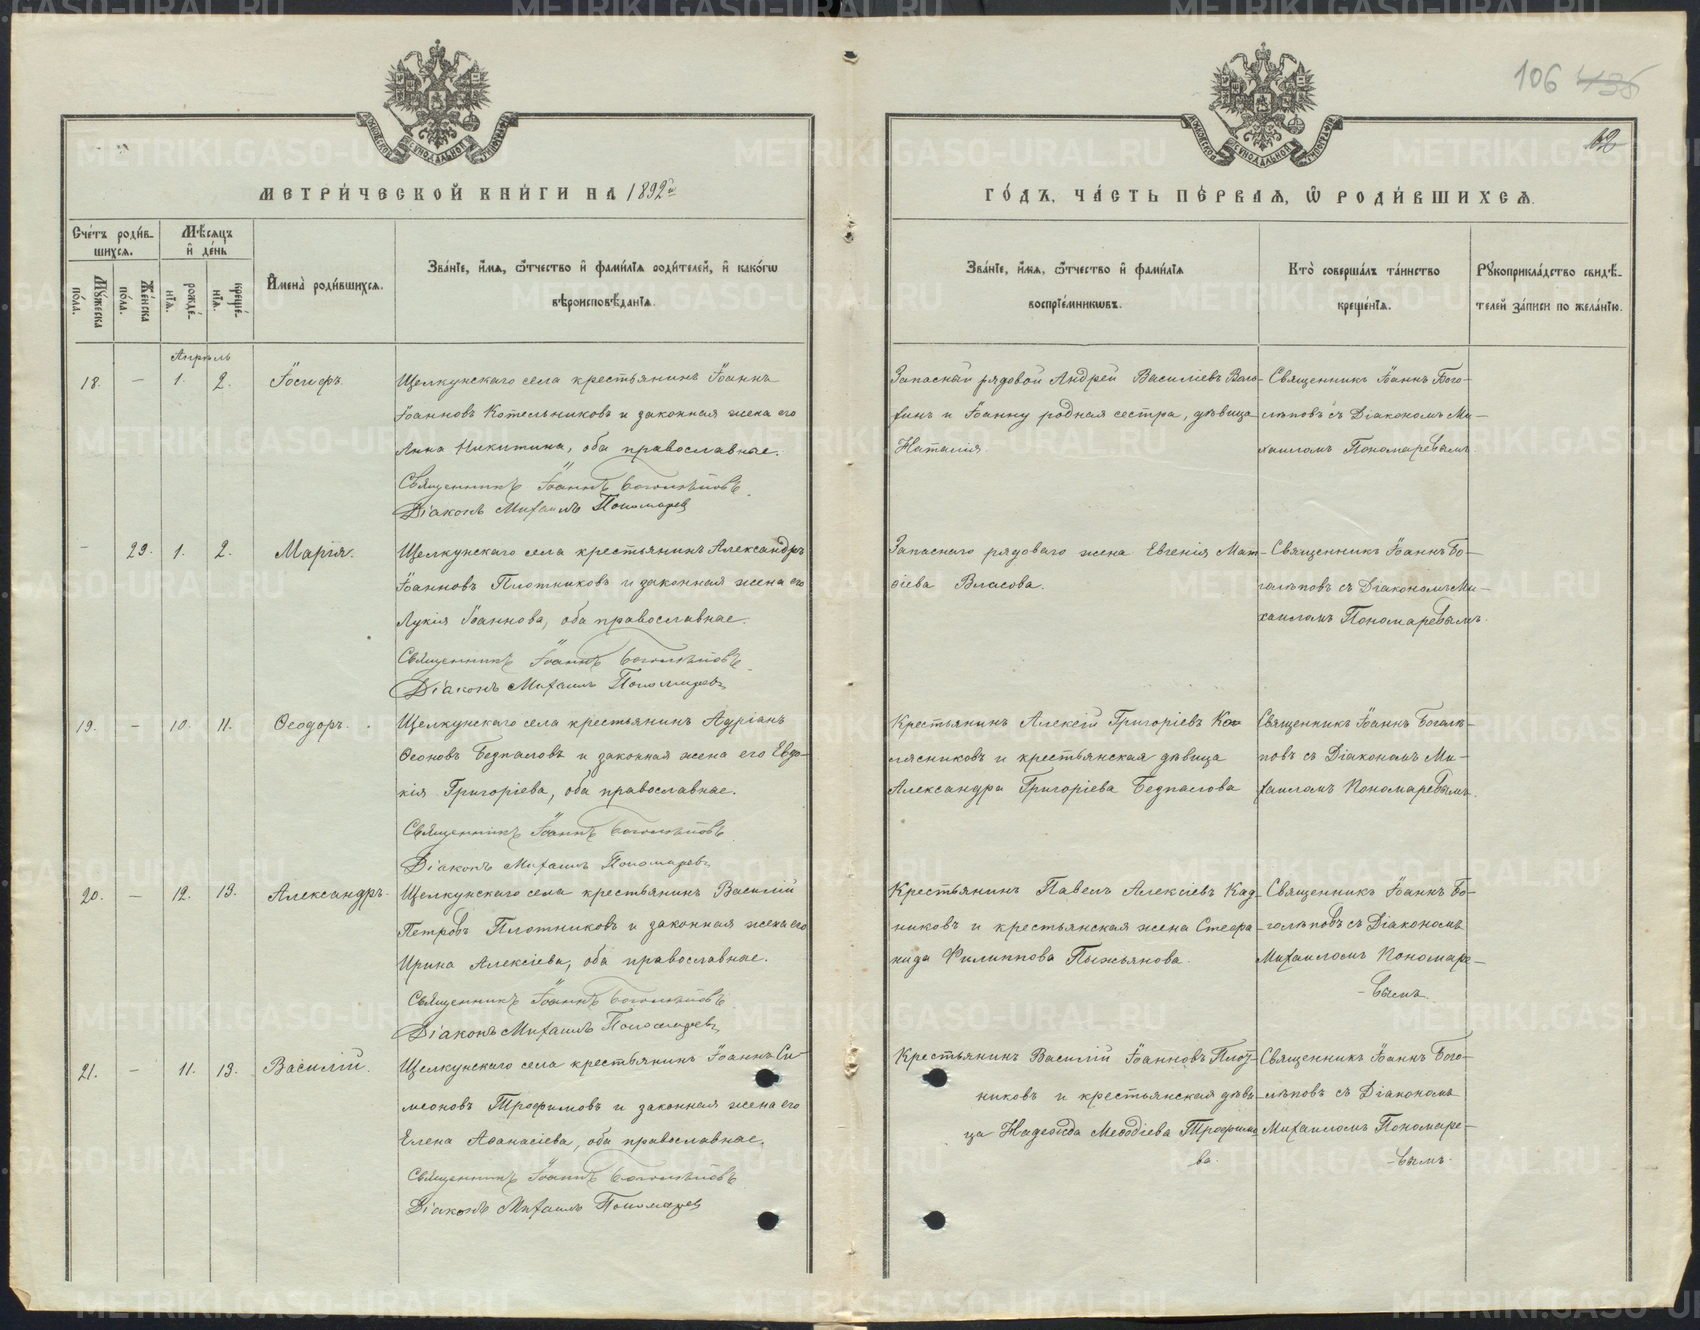 106 436
62
МЕТРИ́ЧЕСКОЙ КНИ́ГИ НА 1892й
ГО́ДЪ, ЧА́СТЬ ПЕ́РВАѦ, Ѡ҆ РОДИ́ВШИХСѦ.
Сче́тъ роди́в-
шихсѧ.
Мѣ́сѧцъ
и҆ де́нь
Мꙋ́жеска по́ла.
Же́нска по́ла.
рожде́-
нїѧ.
креще́-
нїѧ.
И҆мена̀ роди́вшихсѧ.
Зва́нїе, и҆́мѧ, ѻ҆́тчество и҆ фами́лїѧ роди́телей, и҆ како́гѡ
вѣроисповѣ́данїѧ.
Зва́нїе, и҆́мѧ, ѻ҆́тчество и҆ фами́лїѧ
воспрїе́мникѡвъ.
Кто̀ соверша́лъ та́инство
креще́нїѧ.
Рꙋкоприкла́дство свидѣ́-
телей за́писи по жела́нїю.
Апрѣль
18. — 1. 2. Іосифъ.
Щелкунскаго села крестьянинъ Іоаннъ
Іоанновъ Котельниковъ и законная жена его
Анна Никитина, оба православные.
Священникъ Іоаннъ Боголѣповъ
Діаконъ Михаилъ Пономарев
Запасный рядовой Андрей Василіевъ
и Іоанну родная сестра, дѣвица
Наталія.
Священникъ Іоаннъ Бого-
лѣповъ съ Діакономъ Ми-
хаиломъ Пономаревымъ.
— 29. 1. 2. Марія.
Щелкунскаго села крестьянинъ Александръ
Іоанновъ Плотниковъ и законная жена его
Лукія Іоаннова, оба православные.
Священникъ Іоаннъ Боголѣповъ
Діаконъ Михаилъ Пономаревъ
Запаснаго рядоваго жена Евгенія Мат-
ѳіева Власова.
Священникъ Іоаннъ Бо-
голѣповъ съ Діакономъ Ми-
хаиломъ Пономаревымъ.
19. — 10. 11. Ѳеодоръ.
Щелкунскаго села крестьянинъ Адріанъ
Ѳеоновъ Безпаловъ и законная жена его Евдо-
кія Григоріева, оба православные.
Священникъ Іоаннъ Боголѣповъ
Діаконъ Михаилъ Пономаревъ
Крестьянинъ Алексій Григоріевъ Кол-
лясниковъ и крестьянская дѣвица
Александра Григоріева Безпалова
Священникъ Іоаннъ Боголѣ-
повъ съ Діакономъ Ми-
хаиломъ Пономаревымъ.
20. — 12. 13. Александръ.
Щелкунскаго села крестьянинъ Василій
Петровъ Плотниковъ и законная жена его
Ирина Алексіева, оба православные.
Священникъ Іоаннъ Боголѣповъ
Діаконъ Михаилъ Пономаревъ
Крестьянинъ Павелъ Алексіевъ Кад-
никовъ и крестьянская жена Стефа-
нида Филиппова Пыжьянова.
Священникъ Іоаннъ Бо-
голѣповъ съ Діакономъ
Михаиломъ Пономаре-
-вымъ.
21. — 11. 13. Василій.
Щелкунскаго села крестьянинъ Іоаннъ Си-
меоновъ Трофимовъ и законная жена его
Елена Аѳанасіева, оба православные.
Священникъ Іоаннъ Боголѣповъ
Діаконъ Михаилъ Пономарев
Крестьянинъ Василій Іоанновъ Плот-
никовъ и крестьянская дѣви-
ца Надежда Меѳодіева Трофимо-
ва.
Священникъ Іоаннъ Бого-
лѣповъ съ Діакономъ
Михаиломъ Пономаре-
-вымъ.
METRIKI.GASO-URAL.RU